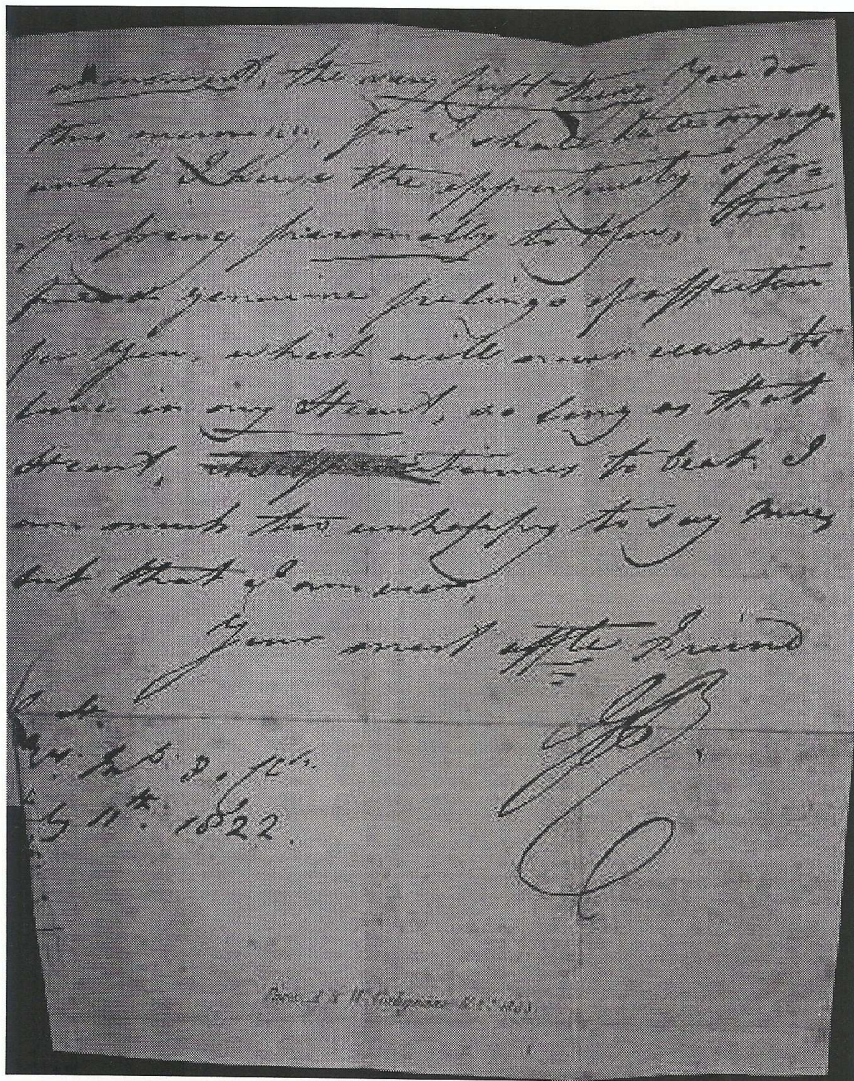 a moment, the very first thing You do
this morning, for I shall hate myself
until I have the opportunity of ex=
=pressing personally to You, those
genuine feelings of affection
for You, which will never cease to
live in my Heart, as long as that
Heart, itself continues to beat. I
am much too unhappy to say more,
but that I am ever,
Your most affte Friend
11th. 1822.